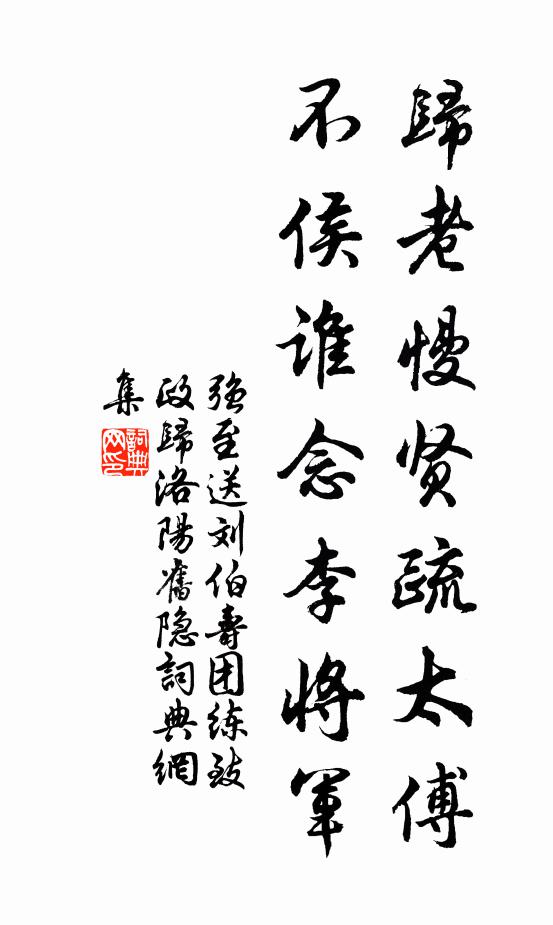 歸老慢贤疏太傅
不侯谁念李将軍
强至送刘伯壽团练致
政歸洛陽舊隐詞典網
集
詞典网印